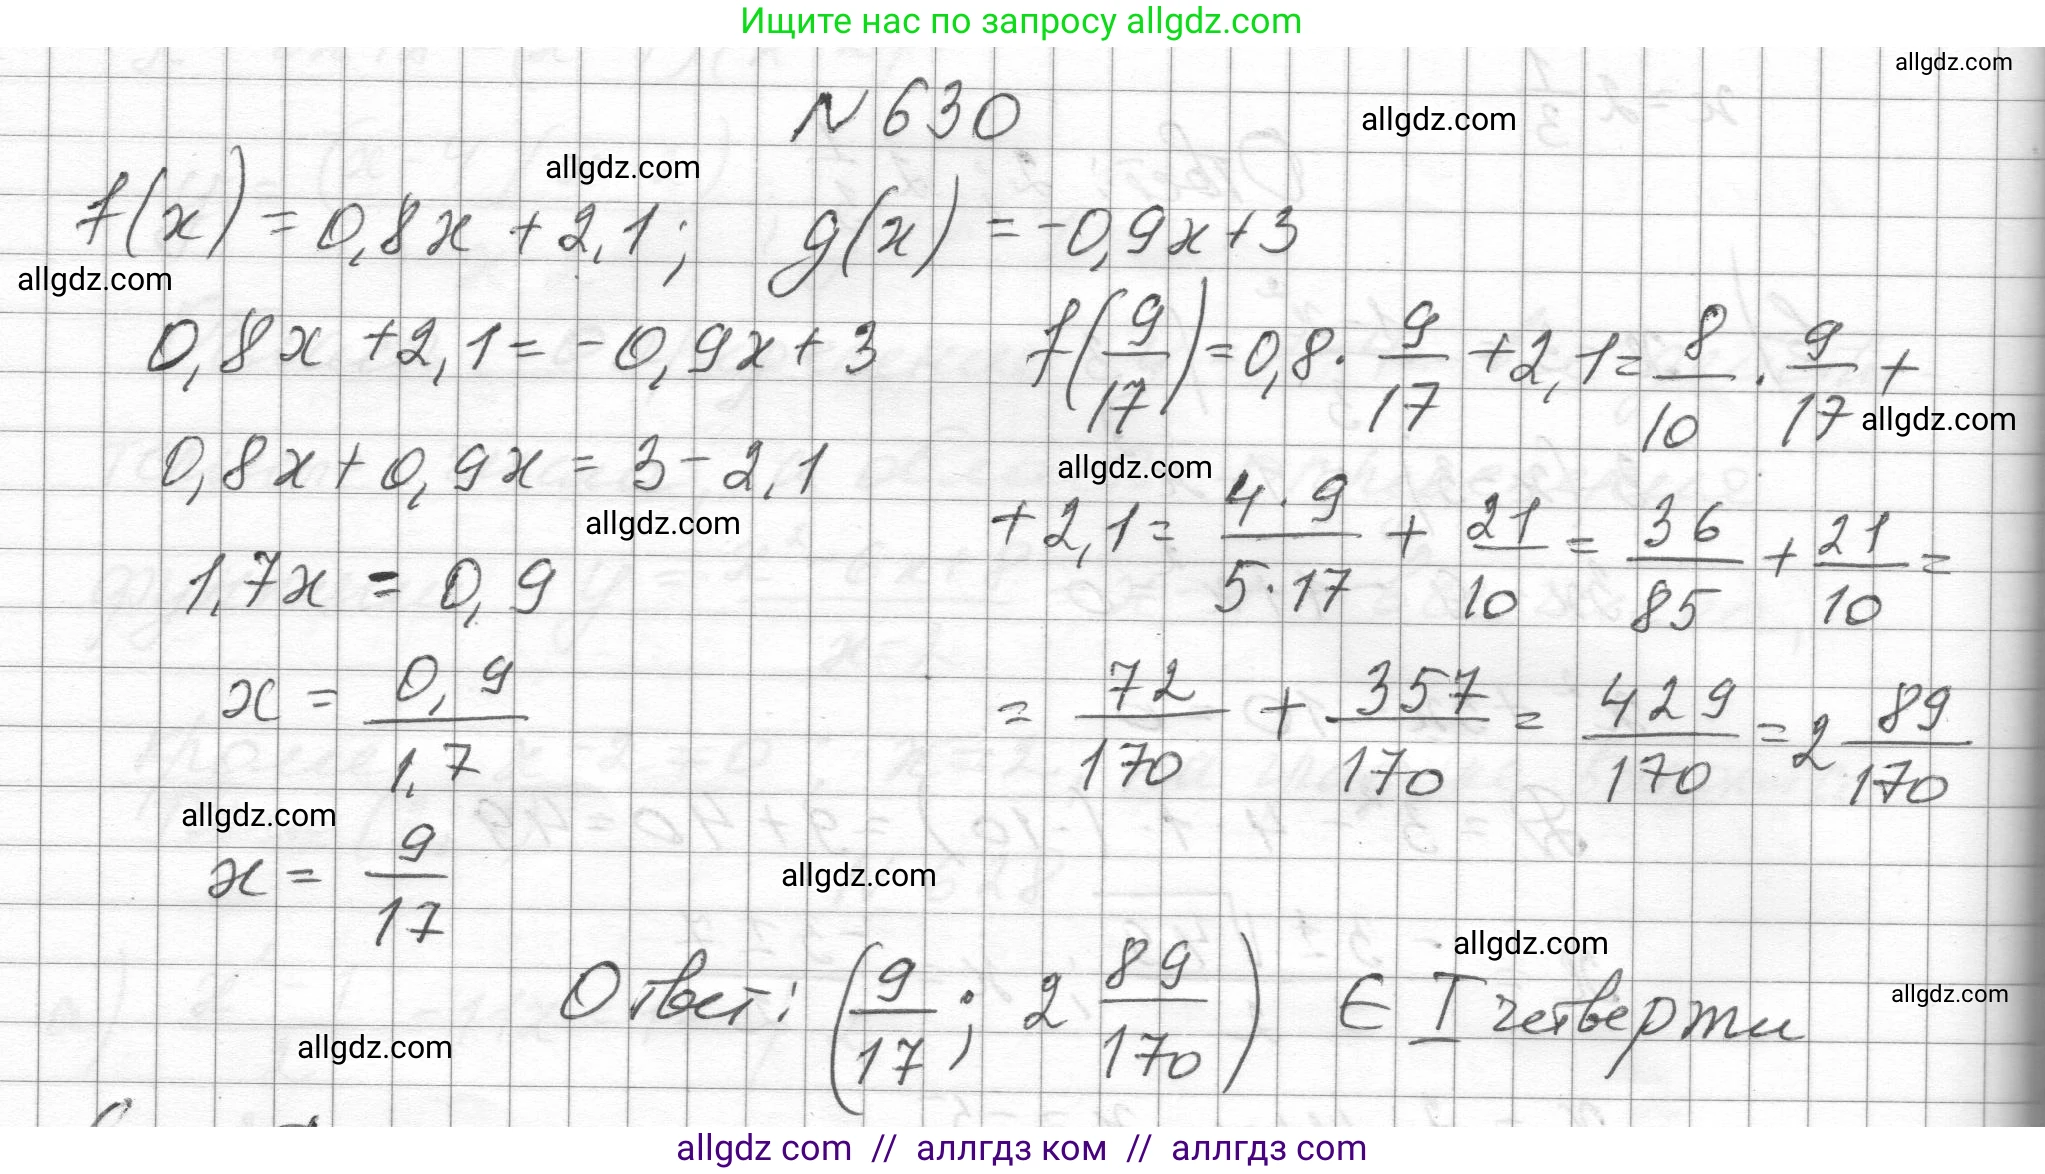 Ищите нас по запросу allgdz.com
allgdz.com
N 630
allgdz.com
allgdz.com
f(x) = 0,8x + 2,1; g(x) = -0,9x + 3
allgdz.com
0,8x + 2,1 = -0,9x + 3
f(9/17) = 0,8 · 9/17 + 2,1 = 8/10 · 9/17 +
allgdz.com
0,8x + 0,9x = 3 - 2,1
allgdz.com
allgdz.com
+ 2,1 = 4·9/5·17 + 21/10 = 36/85 + 21/10 =
1,7x = 0,9
x = 0,9/1,7
= 72/170 + 357/170 = 429/170 = 2 89/170
allgdz.com
x = 9/17
allgdz.com
allgdz.com
Ответ: (9/17; 2 89/170) ∈ I четверти
allgdz.com
allgdz.com
allgdz com // аллгдз ком // аллгдз com